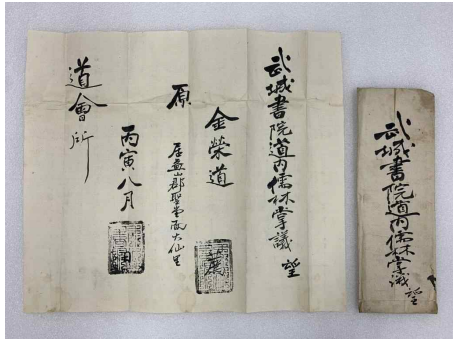 武城書院道内儒林掌議 望
武城書院道内儒林掌議 望
金榮道
原
居益山郡聖堂面大仙里
丙寅八月
道會所